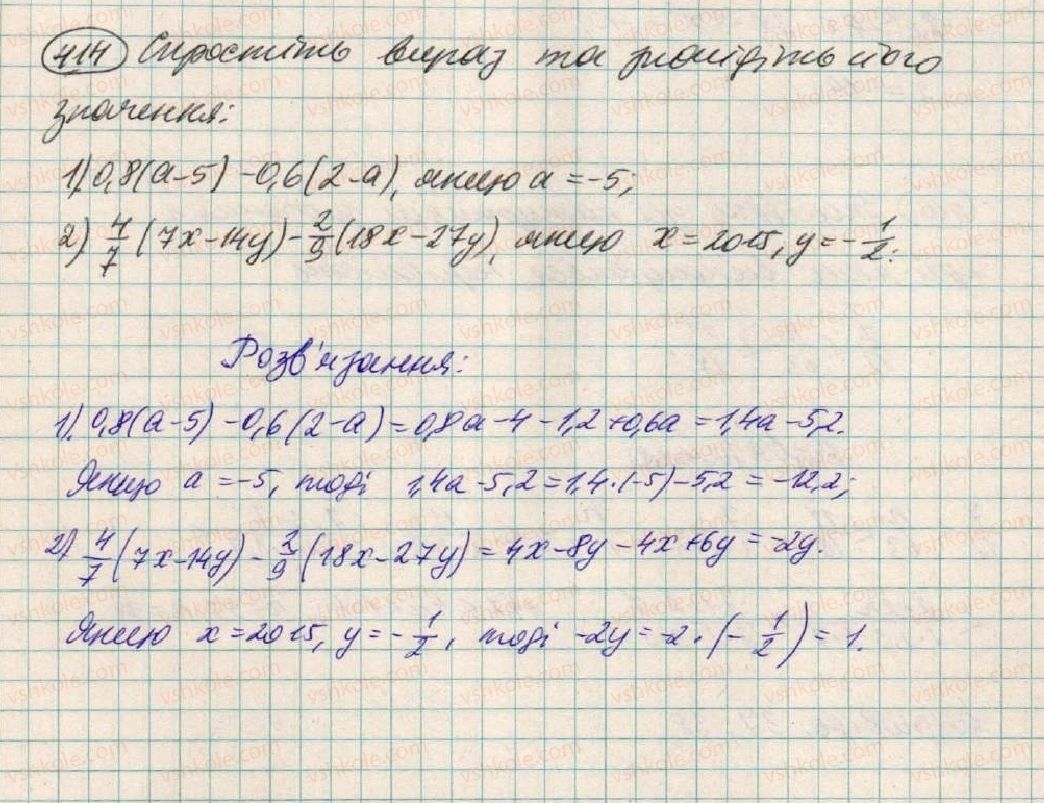 414 Спростіть вираз та знайдіть його
значення:
1) 0,8(a-5) -0,6(2-a), якщо a = -5;
2) 4/7 (7x-14y) - 2/9 (18x-27y), якщо x=2015, y= -1/2.
Розв'язання:
1). 0,8(a-5) -0,6(2-a) = 0,8a -4 -1,2 +0,6a = 1,4a -5,2.
Якщо a = -5, тоді 1,4a -5,2 = 1,4·(-5) -5,2 = -12,2;
2) 4/7 (7x-14y) - 2/9 (18x-27y) = 4x-8y-4x+6y = -2y.
Якщо x=2015, y= -1/2, тоді -2y= -2·(-1/2) = 1.